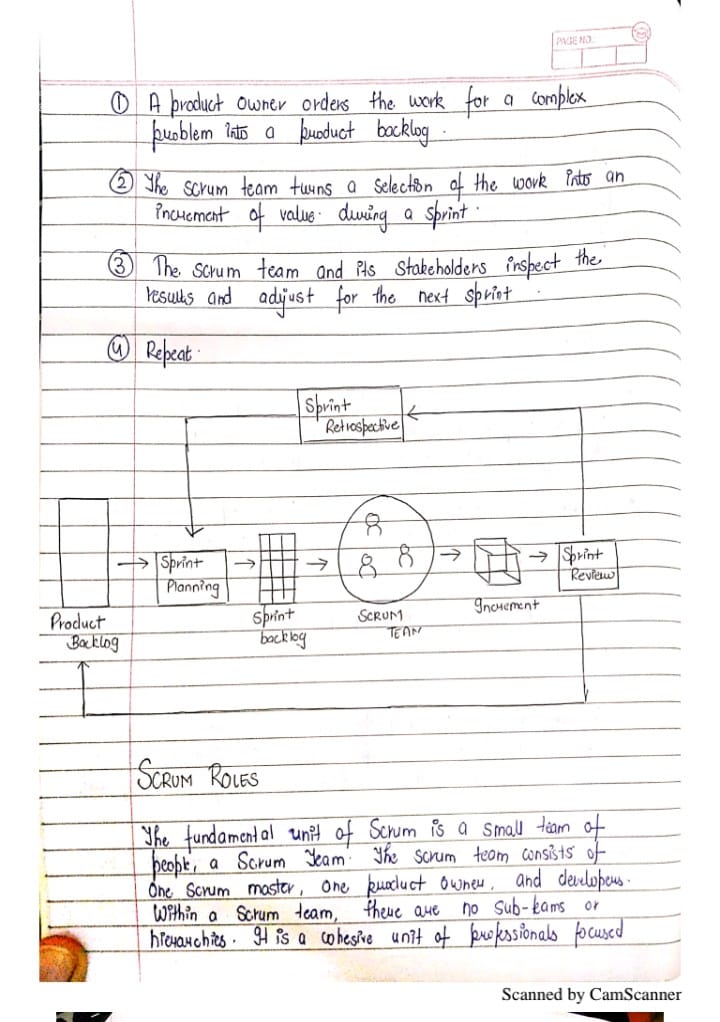 PAGE NO.
① A product owner orders the work for a complex
problem into a product backlog.
② The scrum team turns a selection of the work into an
increment of value. during a sprint.
③ The scrum team and its stakeholders inspect the
results and adjust for the next sprint.
④ Repeat.
Sprint
Retrospective
Sprint
Planning
Sprint
Review
Product
Backlog
Sprint
backlog
SCRUM
TEAM
Increment
SCRUM ROLES
The fundamental unit of Scrum is a small team of
people, a Scrum Team. The scrum team consists of
One Scrum master, One product owner, and developers.
Within a Scrum team, there are no Sub-teams or
hierarchies. It is a cohesive unit of professionals focused
Scanned by CamScanner